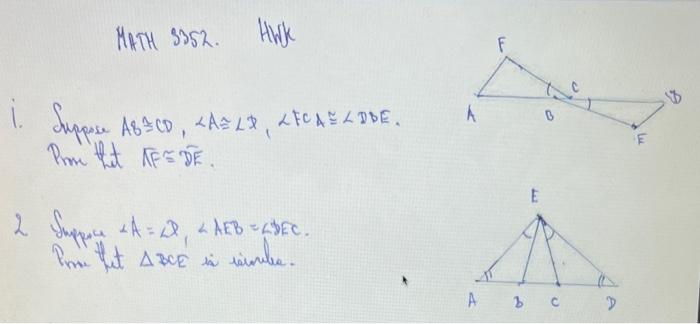 MATH 3352. HWK
1. Suppose AB≅CD, ∠A≅∠D, ∠FCA≅∠DBE.
Prove that AF≅DE.
2 Suppose ∠A=∠D, ∠AEB=∠DEC.
Prove that △BCE is isosceles.
F
C
D
A
B
E
E
A B C D